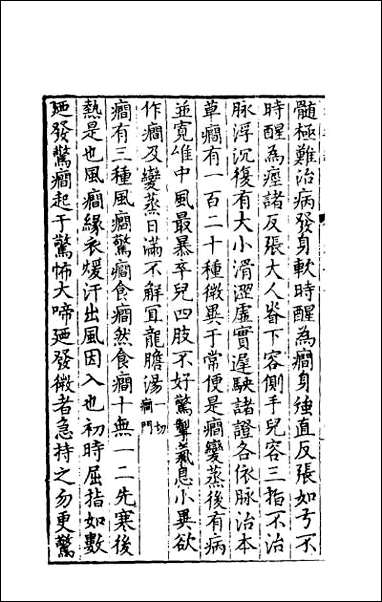 髓極難治病發身軟時醒為癇身強直反張如弓不
時醒為痙諸反張大人脊下容側手兒容三指不治
脉浮沉復有大小滑澀虛實遲駃諸證各依脉治本
草癇有一百二十種微異于常便是癇變蒸後有病
並寬惟中風最暴卒兒四肢不好驚掣氣息小異欲
作癇及變蒸日滿不解宜龍膽湯一切癇門
癇有三種風癇驚癇食癇然食癇十無一二先寒後
熱是也風癇緣衣煖汗出風因入也初時屈指如數
廼發驚癇起于驚怖大啼廼發微者急持之勿更驚